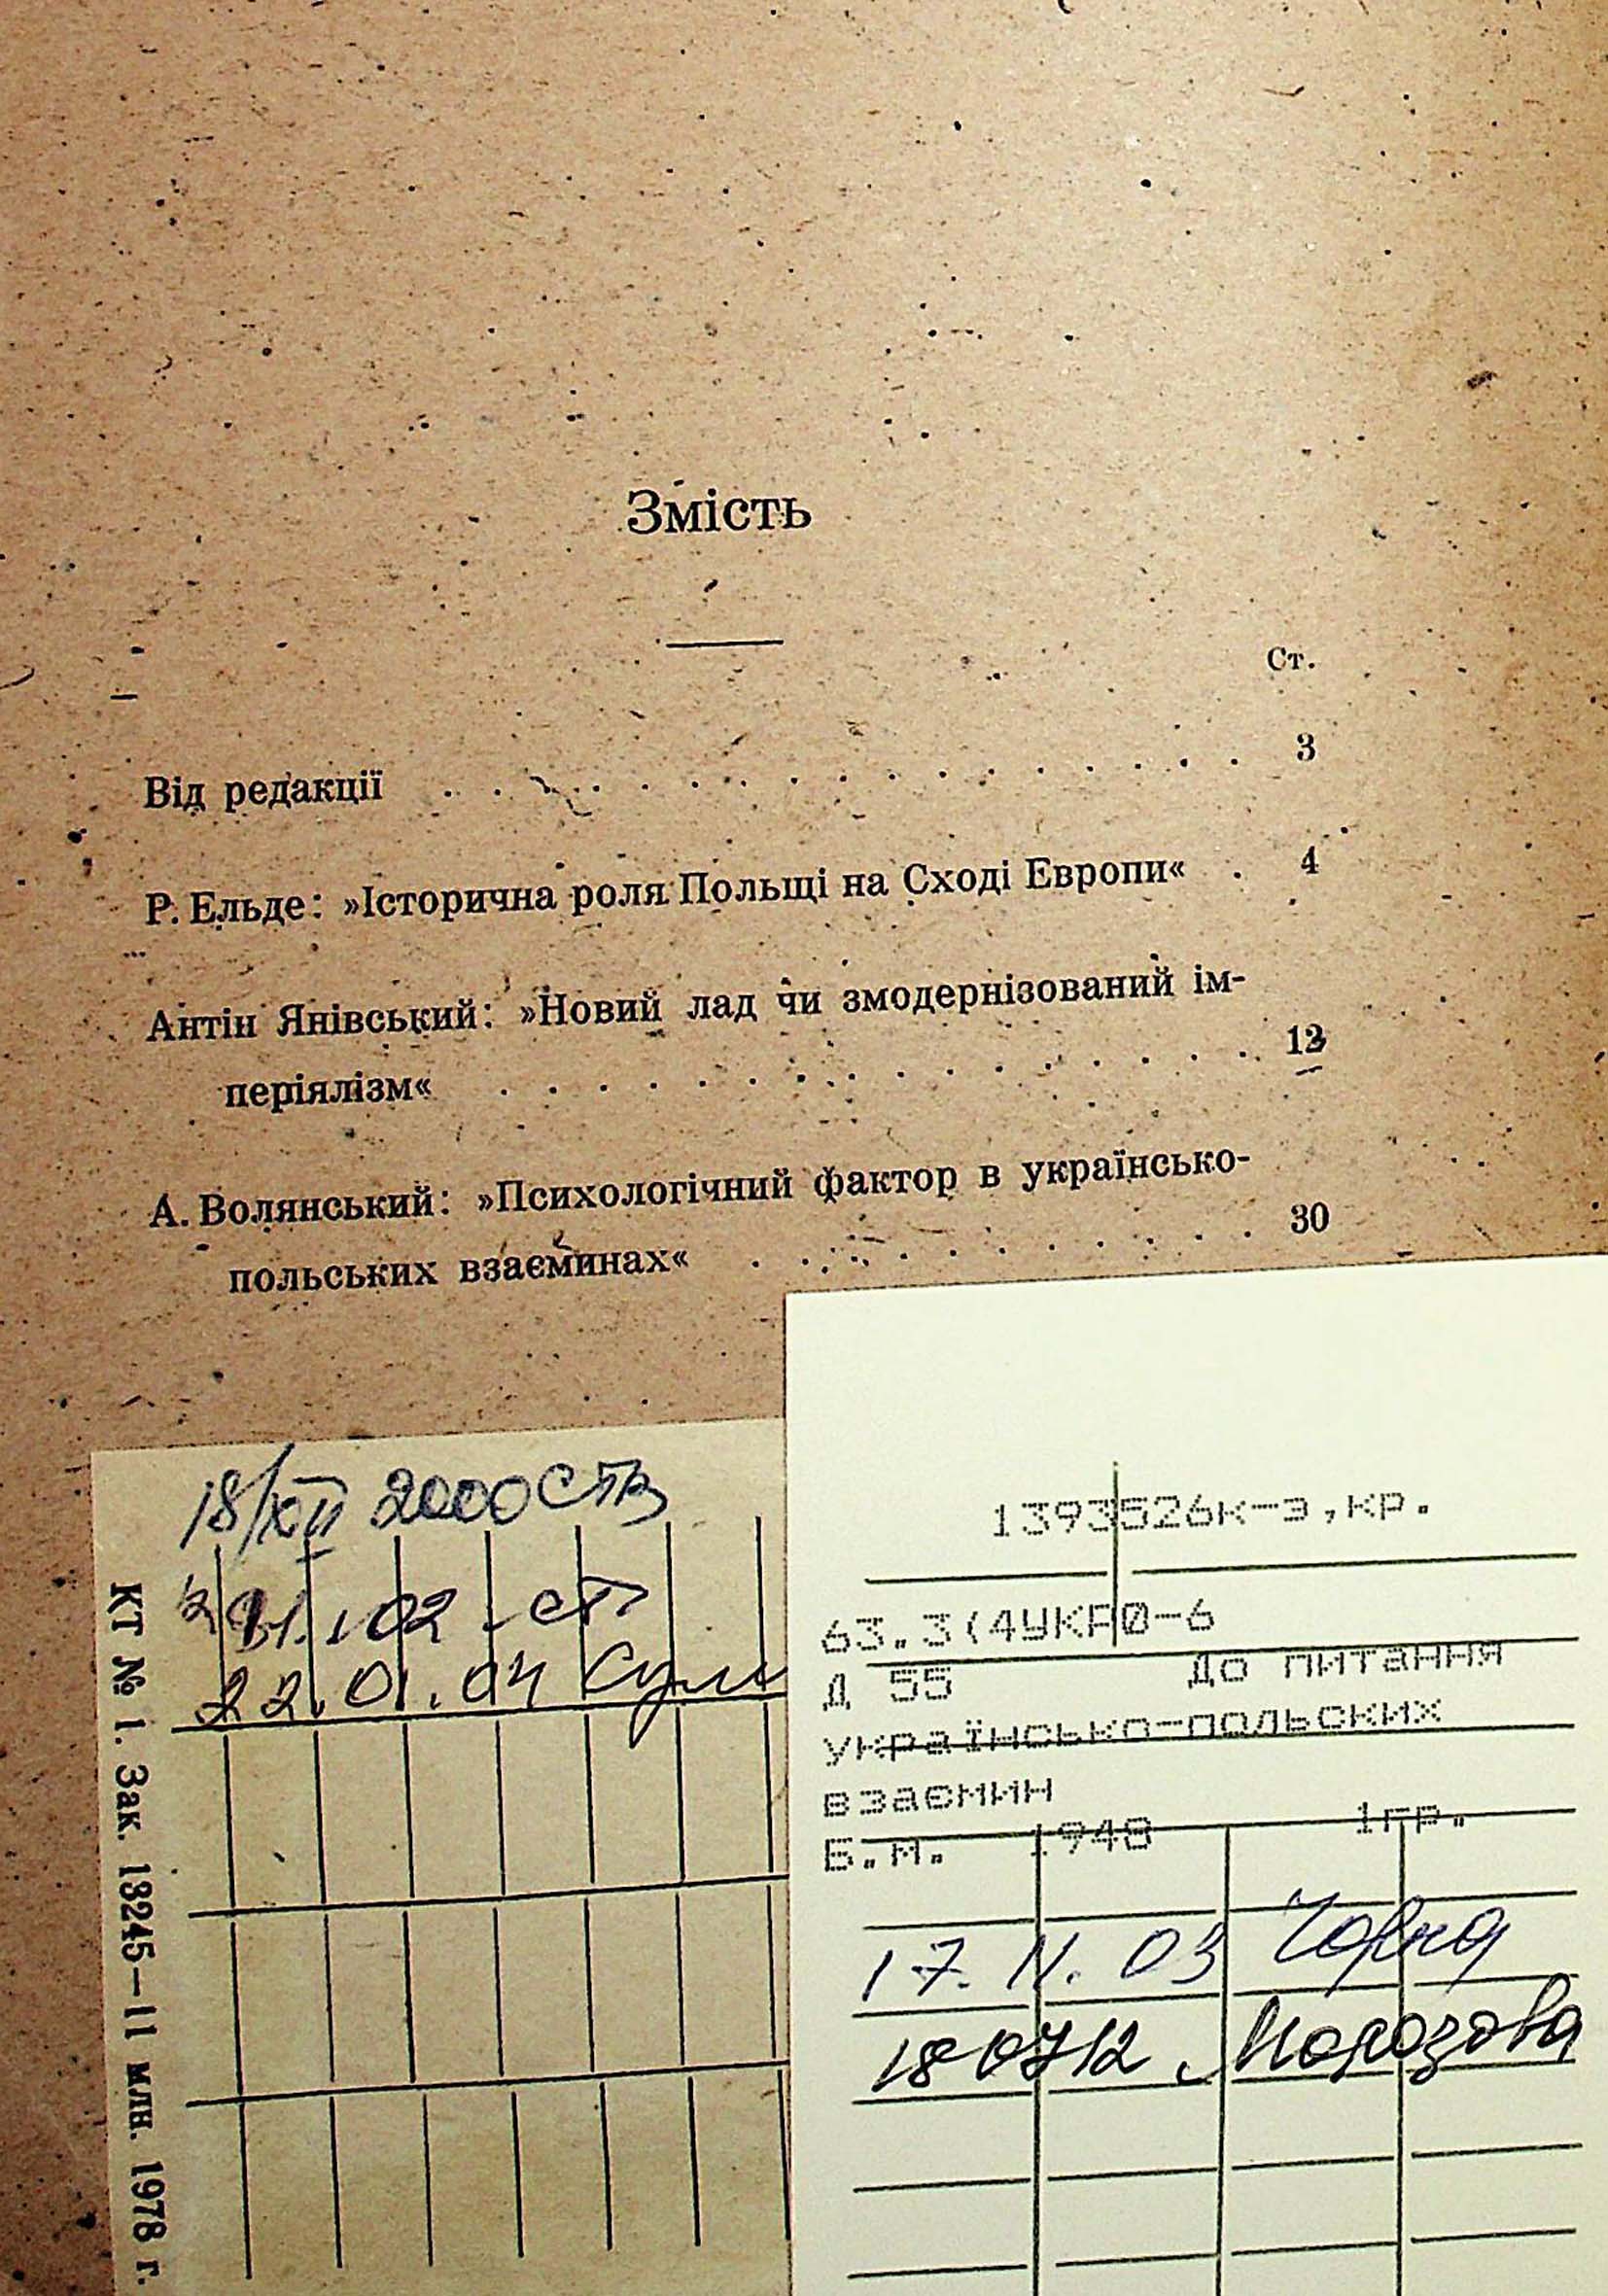 Змість
Ст.
Від редакції . . . . . . . . . . . . . . . . 3
Р. Ельде: »Історична роля Польщі на Сході Европи« . 4
Антін Янівський: »Новий лад чи змодернізований ім-
періялізм« . . . . . . . . . . . . . . . . 12
А. Волянський: »Психологічний фактор в українсько-
польських взаєминах« . . . . . . . . . . . 30
18/XII 2000
22.01.04
КТ № 1. Зак. 13245—11 млн. 1978 г.
1393526к-э,кр.
63.3(4УКР)-6
Д 55 До питання
українсько-польских
взаємин
Б.м. 1948 1гр.
17. IV. 03
180712 Морозова